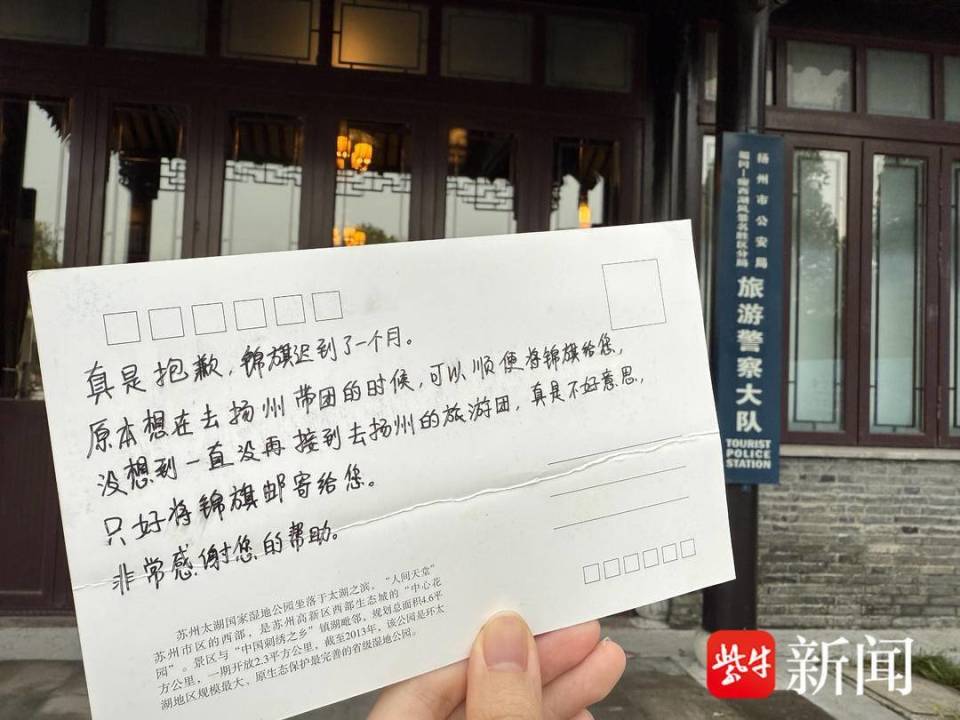 真是抱歉，锦旗迟到了一个月。
原本想在去扬州带团的时候，可以顺便将锦旗给您，
没想到一直没再接到去扬州的旅游团，真是不好意思，
只好将锦旗邮寄给您。
非常感谢您的帮助。
苏州太湖国家湿地公园坐落于太湖之滨，“人间天堂”
苏州市区的西部，是苏州高新区西部生态城的“中心花
园”。景区与“中国刺绣之乡”镇湖毗邻，规划总面积4.6平
方公里，一期开放2.3平方公里，截至2013年，该公园是环太
湖地区规模最大、原生态保护最完善的省级湿地公园。
扬州市公安局
蜀冈－瘦西湖风景名胜区分局
旅游警察大队
TOURIST
POLICE
STATION
紫牛新闻